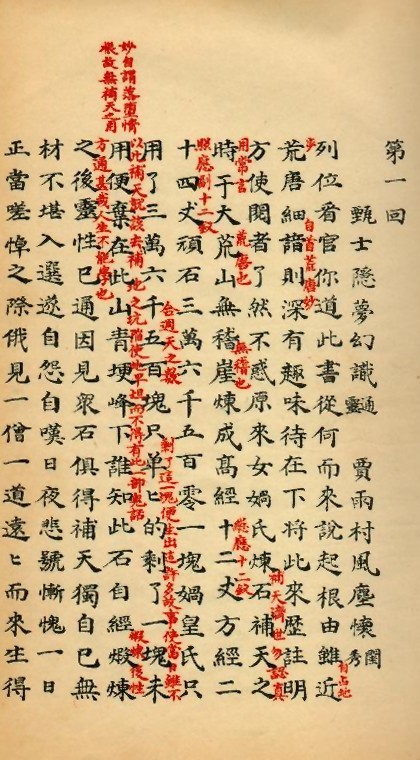 第一回
甄士隱夢幻識通靈　賈雨村風塵懷閨秀
列位看官你道此書從何而來說起根由雖近
自占地步
自首荒唐妙
荒唐細諳則深有趣味待在下將此來歷註明
方使閱者了然不惑原來女媧氏煉石補天之
補天濟世勿認真用常言
荒唐也
無稽也
時于大荒山無稽崖煉成高經十二丈方經二
總應十二釵
照應副十二釵
十四丈頑石三萬六千五百零一塊媧皇氏只
合週天之數
用了三萬六千五百塊只單〻的剩了一塊未
剩了這一塊便生出這許多故事使當日雖不以此補天就該去補地之坑陷使地平坦而不得有此一部鬼話
用便棄在此山青埂峰下誰知此石自經煅煉
妙自謂落墮情根故無補天之用
煅煉後性方通甚哉人生不能學也
之後靈性已通因見衆石俱得補天獨自己無
材不堪入選遂自怨自嘆日夜悲號慚愧一日
正當嗟悼之際俄見一僧一道遠〻而來生得